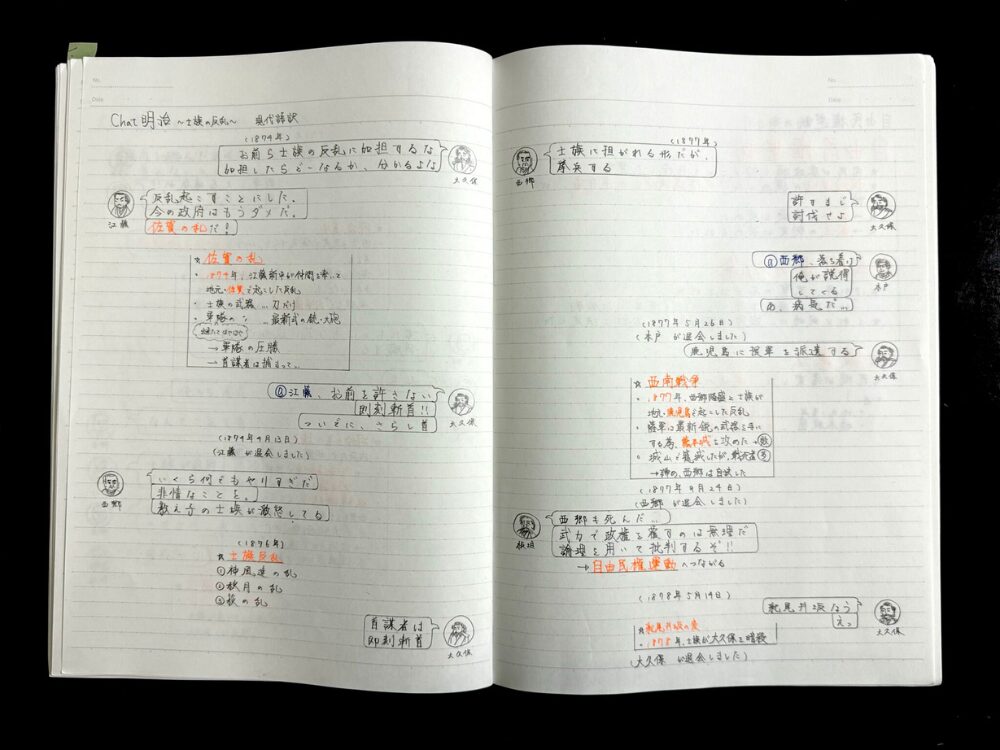 No.
Date
Chat 明治 ～士族の反乱～ 現代語訳
(1874年)
お前ら士族の反乱に加担するな
加担したらどーなるか、分かるよな
大久保
反乱起こすことにした。
今の政府はもうダメだ。
佐賀の乱だ!
江藤
☆ 佐賀の乱
・1874年、江藤新平が仲間を率いて
地元・佐賀で起こした反乱
・士族の武器…刀だけ
・軍隊の 〃 …最新式の銃・大砲
→軍隊の圧勝
→首謀者は捕まって…
@江藤、お前を許さない
即刻斬首!!
ついでに、さらし首
大久保
(1874年4月13日)
(江藤 が退会しました)
いくら何でもやりすぎだ
非情なことを。
教え子の士族が激怒してる
西郷
(1876年)
☆ 士族反乱
①神風連の乱
②秋月の乱
③萩の乱
首謀者は
即刻斬首
大久保
No.
Date
(1877年)
士族に担がれる形だが、
挙兵する
西郷
許すまじ
討伐せよ
大久保
@西郷、落ち着け
俺が説得
してくる
あ、病気だ…
木戸
(1877年5月26日)
(木戸 が退会しました)
鹿児島に援軍を派遣する
大久保
☆ 西南戦争
・1877年、西郷隆盛と士族が
地元・鹿児島で起こした反乱
・薩軍は最新鋭の武器を手に
する為、熊本城を攻めた→敗
・城山で籠城したが、戦死者多
→神の、西郷は自決した
(1877年9月24日)
(西郷 が退会しました)
西郷も死んだ…
武力で政権を覆すのは無理だ
論理を用いて批判するぞ!!
→自由民権運動へつながる
板垣
(1878年5月14日)
紀尾井坂なう
えっ
大久保
☆紀尾井坂の変
・1878年、士族が大久保を暗殺
(大久保 が退会しました)